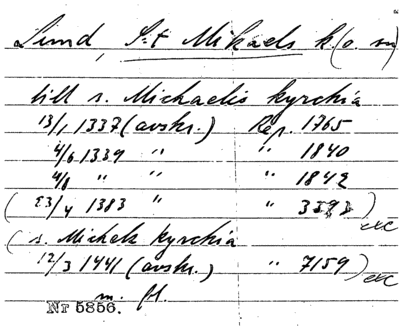 Lund, S:t Mikaels k. (o. sn)
till s. Michaelis kyrchia
13/1 1337 (avskr.) Rep. 1765
4/6 1339 " " 1840
4/8 " " " 1842
(23/4 1383 " " 3393) exc
(s. Michels kyrchia
12/3 1441 (avskr.) " 7159) exc
m. fl.
Nr 5856.